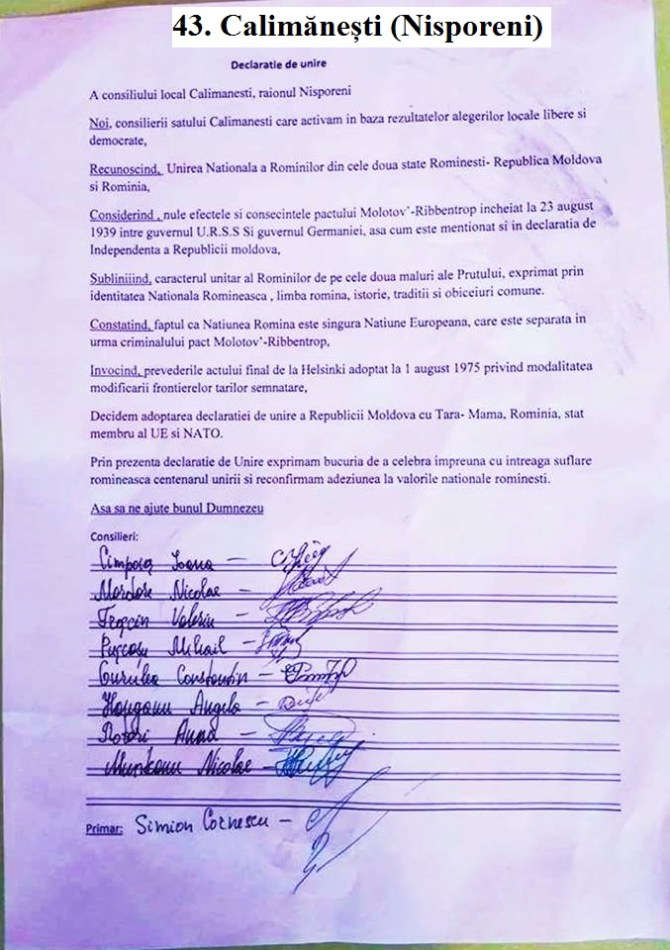 43. Calimănești (Nisporeni)
Declaratie de unire
A consiliului local Calimanesti, raionul Nisporeni
Noi, consilierii satului Calimanesti care activam in baza rezultatelor alegerilor locale libere si
democrate,
Recunoscind, Unirea Nationala a Rominilor din cele doua state Rominesti- Republica Moldova
si Rominia,
Considerind , nule efectele si consecintele pactului Molotov'-Ribbentrop incheiat la 23 august
1939 intre guvernul U.R.S.S Si guvernul Germaniei, asa cum este mentionat si in declaratia de
Independenta a Republicii moldova,
Subliniiind, caracterul unitar al Rominilor de pe cele doua maluri ale Prutului, exprimat prin
identitatea Nationala Romineasca , limba romina, istorie, traditii si obiceiuri comune.
Constatind, faptul ca Natiunea Romina este singura Natiune Europeana, care este separata in
urma criminalului pact Molotov'-Ribbentrop,
Invocind, prevederile actului final de la Helsinki adoptat la 1 august 1975 privind modalitatea
modificarii frontierelor tarilor semnatare,
Decidem adoptarea declaratiei de unire a Republicii Moldova cu Tara- Mama, Rominia, stat
membru al UE si NATO.
Prin prezenta declaratie de Unire exprimam bucuria de a celebra impreuna cu intreaga suflare
romineasca centenarul unirii si reconfirmam adeziunea la valorile nationale rominesti.
Asa sa ne ajute bunul Dumnezeu
Consilieri:
Cimpoieș Ioana –
Mordare Nicolae –
Valeriu –
Pușcașu Mihail –
Gurulea Constantin –
Angela –
Rotari Anna –
Munteanu Nicolae –
Primar: Simion Cornescu –